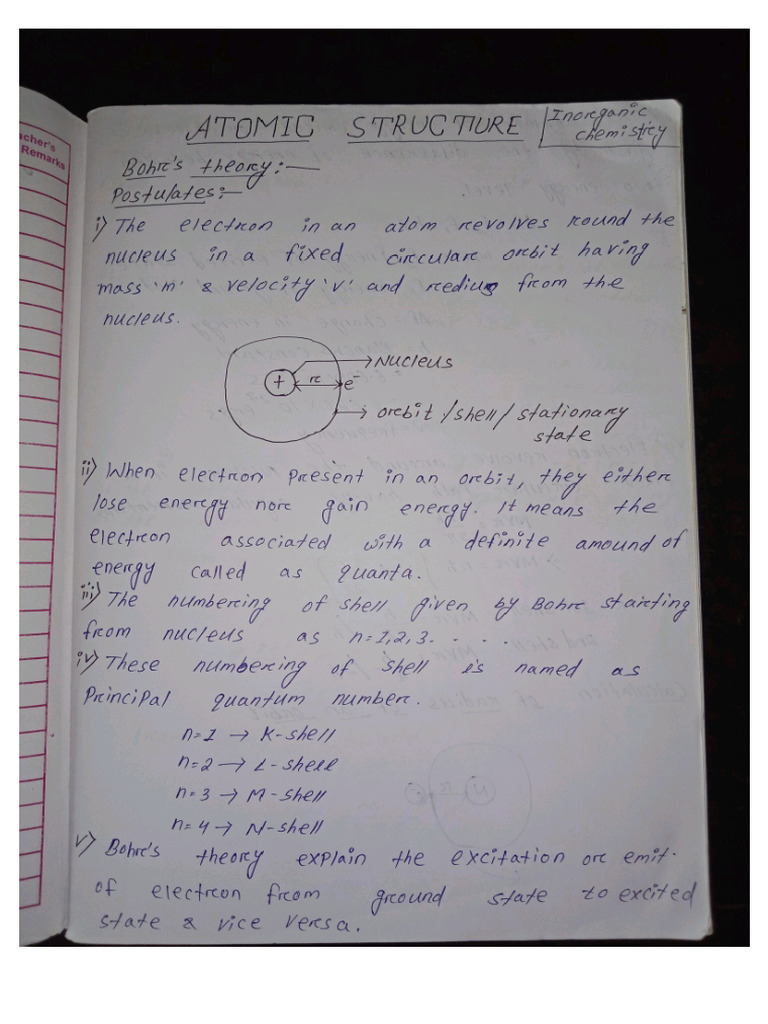 ATOMIC STRUCTURE
Inorganic
chemistry
acher's
Remarks
Bohr's theory:-
Postulates:-
i) The electron in an atom revolves round the
nucleus in a fixed circular orbit having
mass 'm' & velocity 'v' and redius from the
nucleus.
Nucleus
+ r e⁻
orbit / shell / stationary
state
ii) When electron present in an orbit, they either
lose energy nor gain energy. It means the
electron associated with a definite amound of
energy called as quanta.
iii) The numbering of shell given by Bohr starting
from nucleus as n=1,2,3. . . . .
iv) These numbering of shell is named as
Principal quantum number.
n=1 → K-shell
n=2 → L-shell
n=3 → M-shell
n=4 → N-shell
v) Bohr's theory explain the excitation or emit.
of electron from ground state to excited
state & vice versa.